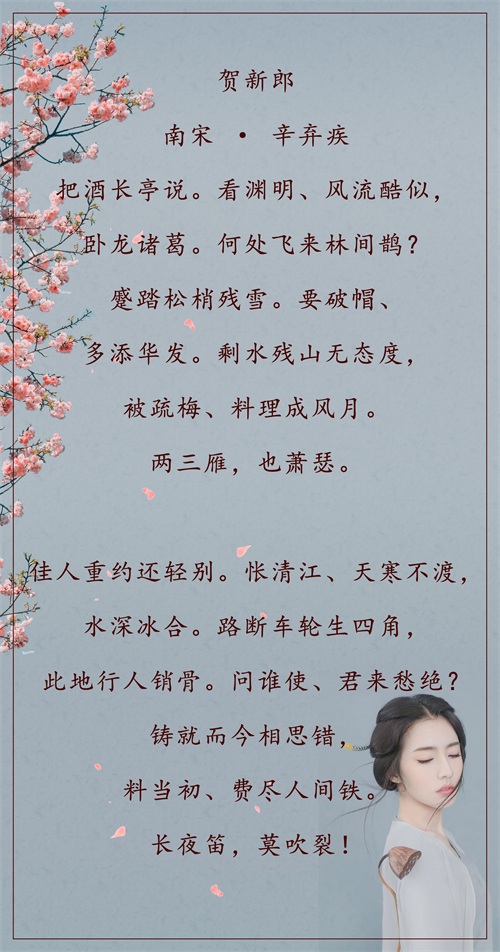 贺新郎
南宋 · 辛弃疾
把酒长亭说。看渊明、风流酷似，
卧龙诸葛。何处飞来林间鹊？
蹙踏松梢残雪。要破帽、
多添华发。剩水残山无态度，
被疏梅、料理成风月。
两三雁，也萧瑟。
佳人重约还轻别。怅清江、天寒不渡，
水深冰合。路断车轮生四角，
此地行人销骨。问谁使、君来愁绝？
铸就而今相思错，
料当初、费尽人间铁。
长夜笛，莫吹裂！